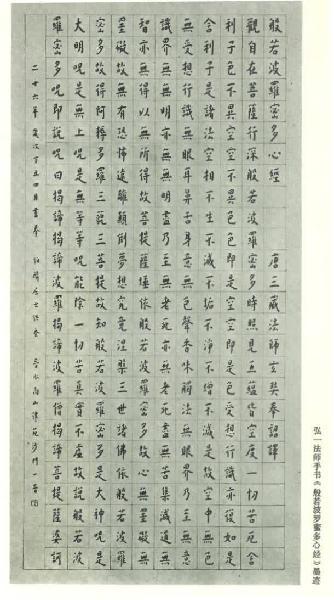 般若波羅密多心經 唐三藏法師玄奘奉詔譯
觀自在菩薩行深般若波羅密多時照見五蘊皆空度一切苦厄舍
利子色不異空空不異色色即是空空即是色受想行識亦復如是
舍利子是諸法空相不生不滅不垢不淨不增不減是故空中無色
無受想行識無眼耳鼻舌身意無色聲香味觸法無眼界乃至無意
識界無無明亦無無明盡乃至無老死亦無老死盡無苦集滅道無
智亦無得以無所得故菩提薩埵依般若波羅密多故心無罣礙無
罣礙故無有恐怖遠離顛倒夢想究竟涅槃三世諸佛依般若波羅
密多故得阿耨多羅三藐三菩提故知般若波羅密多是大神呪是
大明呪是無上呪是無等等呪能除一切苦真實不虛故說般若波
羅密多呪即說呪曰揭諦揭諦波羅揭諦波羅僧揭諦菩提薩婆訶
二十六年歲次丁丑四月書奉 居士供養 沙門一音
弘一法师手书《般若波罗蜜多心经》墨迹